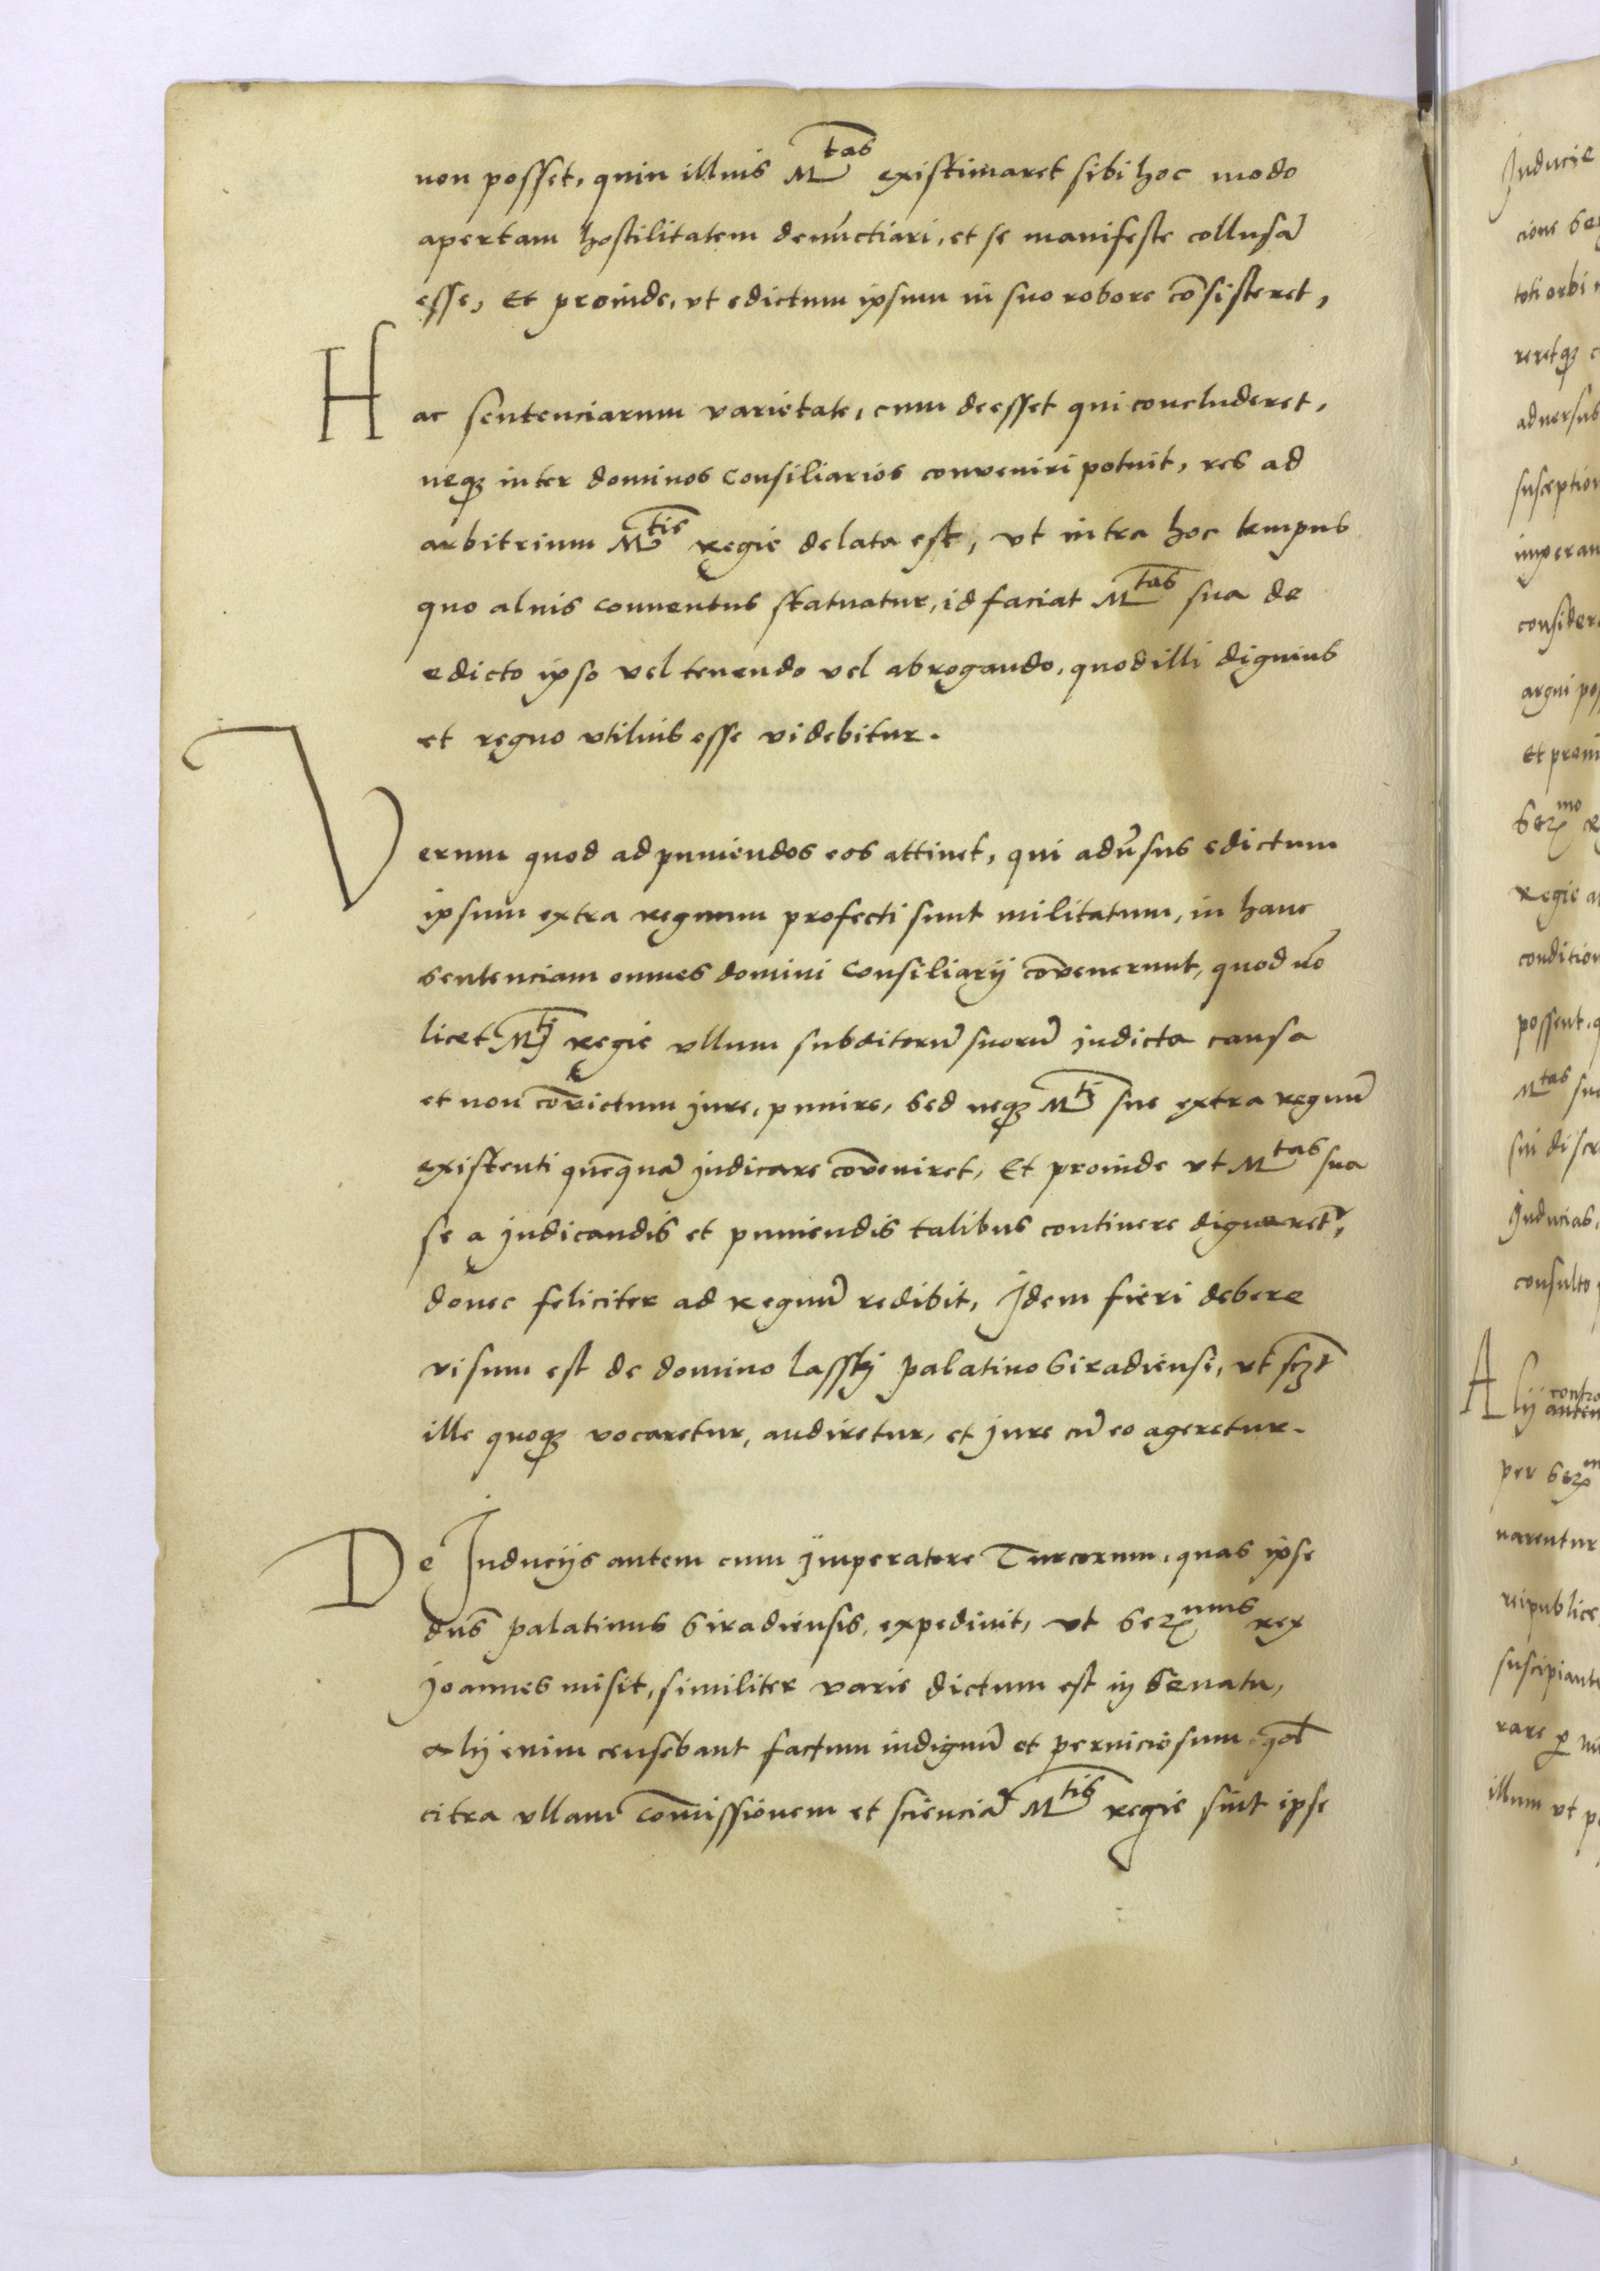 non posset, quin illius M^tas existimaret sibi hoc modo
apertam hostilitatem denūctiari, et se manifeste collusā
esse, Et proinde, vt edictum ipsum in suo robore cōsisteret,
Hac sentenciarum varietate, cum deesset qui concluderet,
neqȝ inter dominos Consiliarios conveniri potuit, res ad
arbitrium M^tis Regie delata est, vt intra hoc tempus
quo alius conuentus statuatur, id faciat M^tas sua de
edicto ipso vel tenendo vel abrogando, quod illi dignius
et regno vtilius esse videbitur.
Verum quod ad puniendos eos attinet, qui adūsus edictum
ipsum extra regnum profecti sunt militatum, in hanc
sentenciam omnes domini Consiliarij cōvenerunt, quod nō
licet M^tj Regie vllum subditorū suorū indicta causa
et non cōvictum jure, punire, sed neqȝ M^tj sue extra regnū
existenti quēquā judicare cōveniret, Et proinde vt M^tas sua
se a judicandis et puniendis talibus continere dignaret~,
donec feliciter ad Regnū redibit, Idem fieri debere
visum est de domino Lasskj palatino Siradiensi, vt sczt
ille quoqȝ vocaretur, audiretur, et jure cū eo ageretur.
De Inducijs autem cum jmperatore Turcorum, quas ipse
dn̄s palatinus Siradiensis, expediuit, vt Ser^mus rex
joannes misit, similiter varie dictum est in senatu,
alij enim censebant factum indignū et perniciosum qd
citra vllam cōmissionem et scienciā M^tis regie sint ipse
Inducie
toti orbi
reretqȝ
aduersus
argui
Ser^mo
Regie
M^tas
Inducias,
consulto
Alij
contra
per
reipublice
illum vt